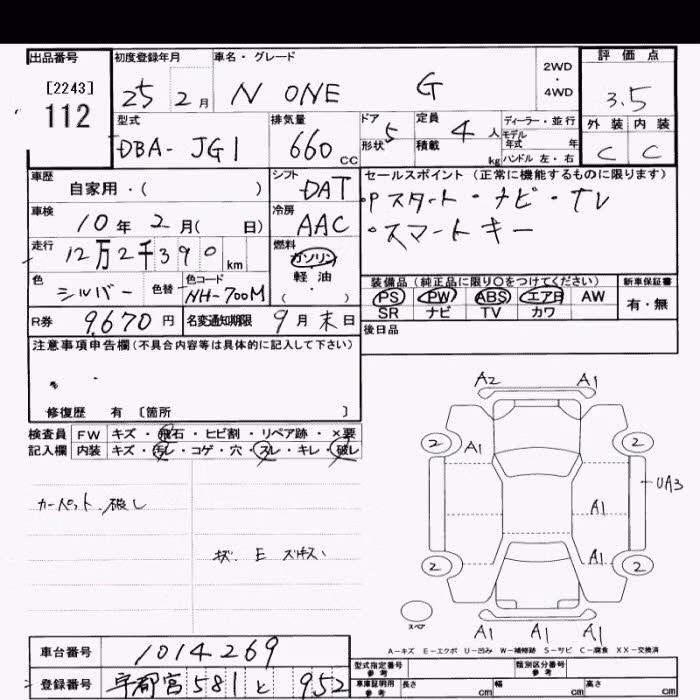 出品番号 初度登録年月 車名・グレード 2WD・4WD 評価点
[2243] 112 25 2月 N ONE G 3.5
型式 排気量 ドア形状 5 定員 4人 積載 kg ディーラー・並行 モデル年式 年 ハンドル 左・右 外装 内装
DBA-JG1 660cc C C
車歴 自家用・( ) シフト DAT セールスポイント(正常に機能するものに限ります)
車検 10年2月( 日) 冷房 AAC ・Pスタート・ナビ・TV
・スマートキー
走行 12万2千390km 燃料 ガソリン 軽・油 (・)
色 シルバー 色替 色コード NH-700M 装備品(純正品に限り○をつけてください) 新車保証書
PS PW ABS エアB AW 有・無
SR ナビ TV カワ
R券 9,670円 名変通知期限 9月末日 後日品
注意事項申告欄(不具合内容等は具体的に記入して下さい)
修復歴 有 [箇所 ]
検査員 FW キズ・飛石・ヒビ割・リペア跡・×要
記入欄 内装 キズ・汚レ・コゲ・穴・スレ・キレ・破レ
カーペット 破レ
A2 A1
2 A1 2
UA3
A1
A1
2 2
スペア A1 A1 A1
A-キズ E-エクボ U-凹み W-補修跡 S-サビ C-腐食 XX-交換済
車台番号 1014269
登録番号 宇都宮 581 と 952
型式指定番号 参考 類別区分番号 参考
車庫証明用 参考 長さ cm 幅 cm 高さ cm